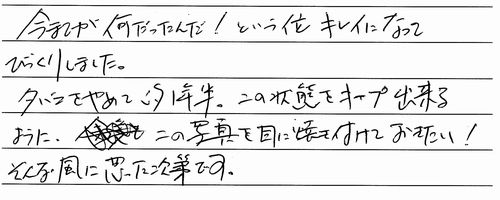 今までが何だったんだ！という位キレイになって
びっくりしました。
タバコをやめて約1年半。この状態をキープ出来る
ように、この写真を目に焼き付けておきたい！
そんな風に思った次第です。